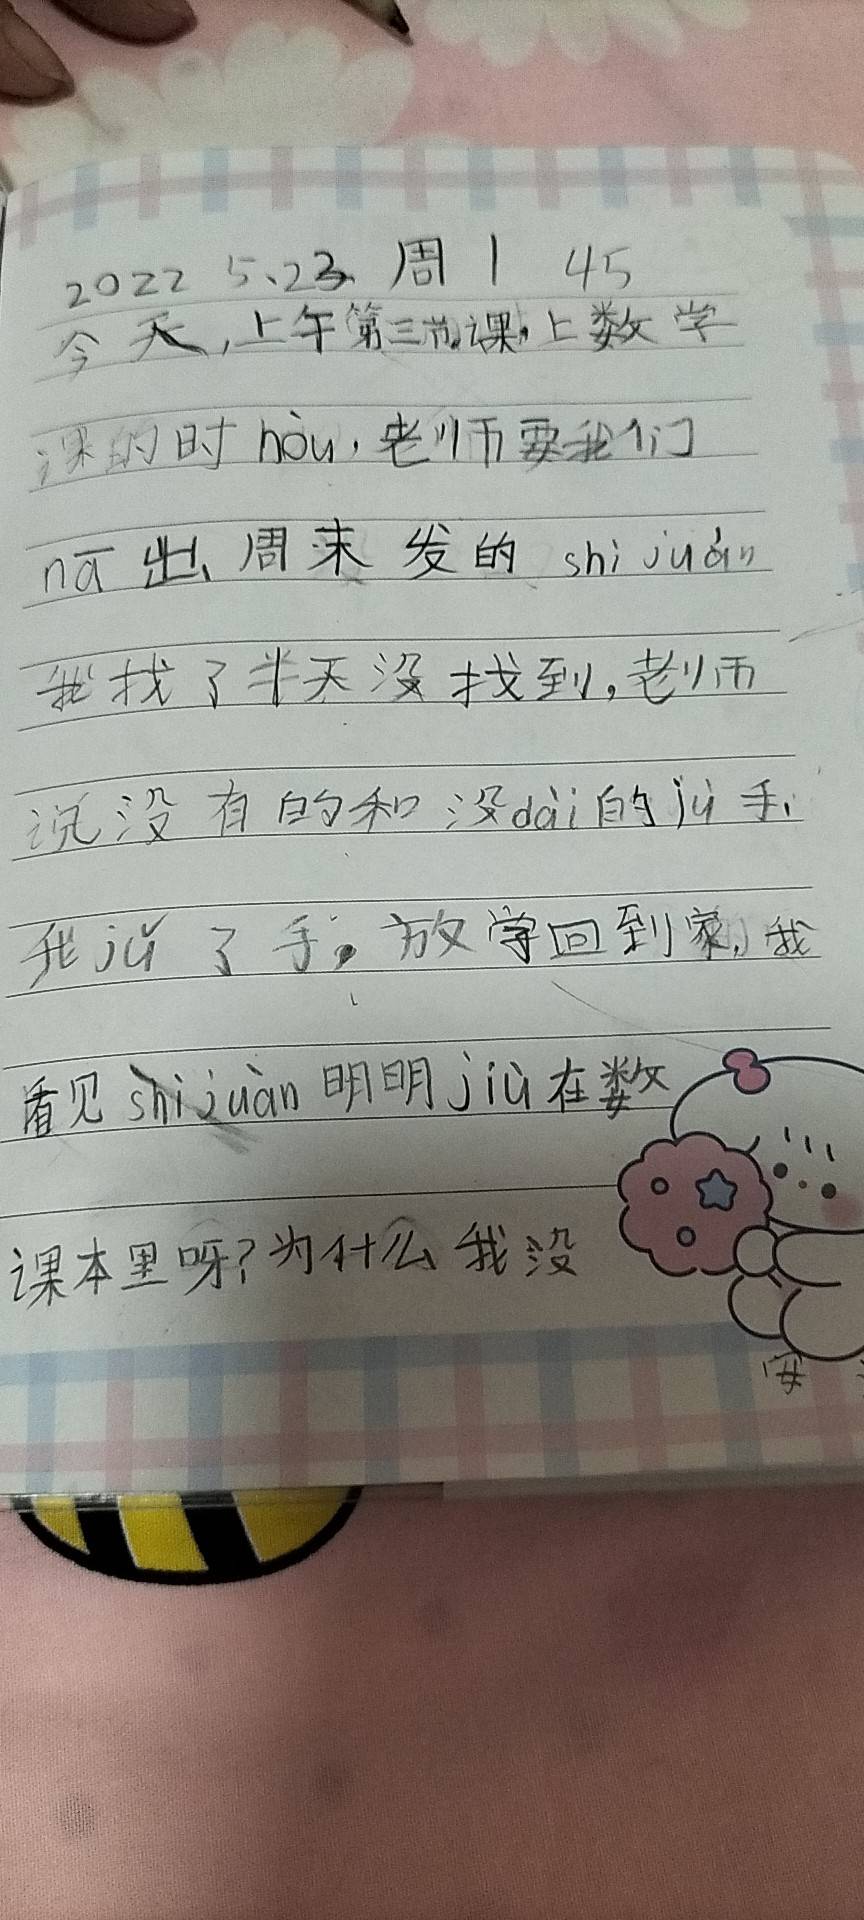 2022 5.23 周1 45
今天,上午第三节课,上数学
课的时hòu,老师要我们
nā出周末发的shijuàn
我找了半天没找到,老师
说没有的和没dài的jǔ手,
我jǔ了手。放学回到家,我
看见shijuàn明明jiù在数
课本里呀?为什么我没